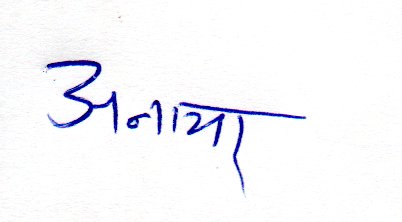 अनाया